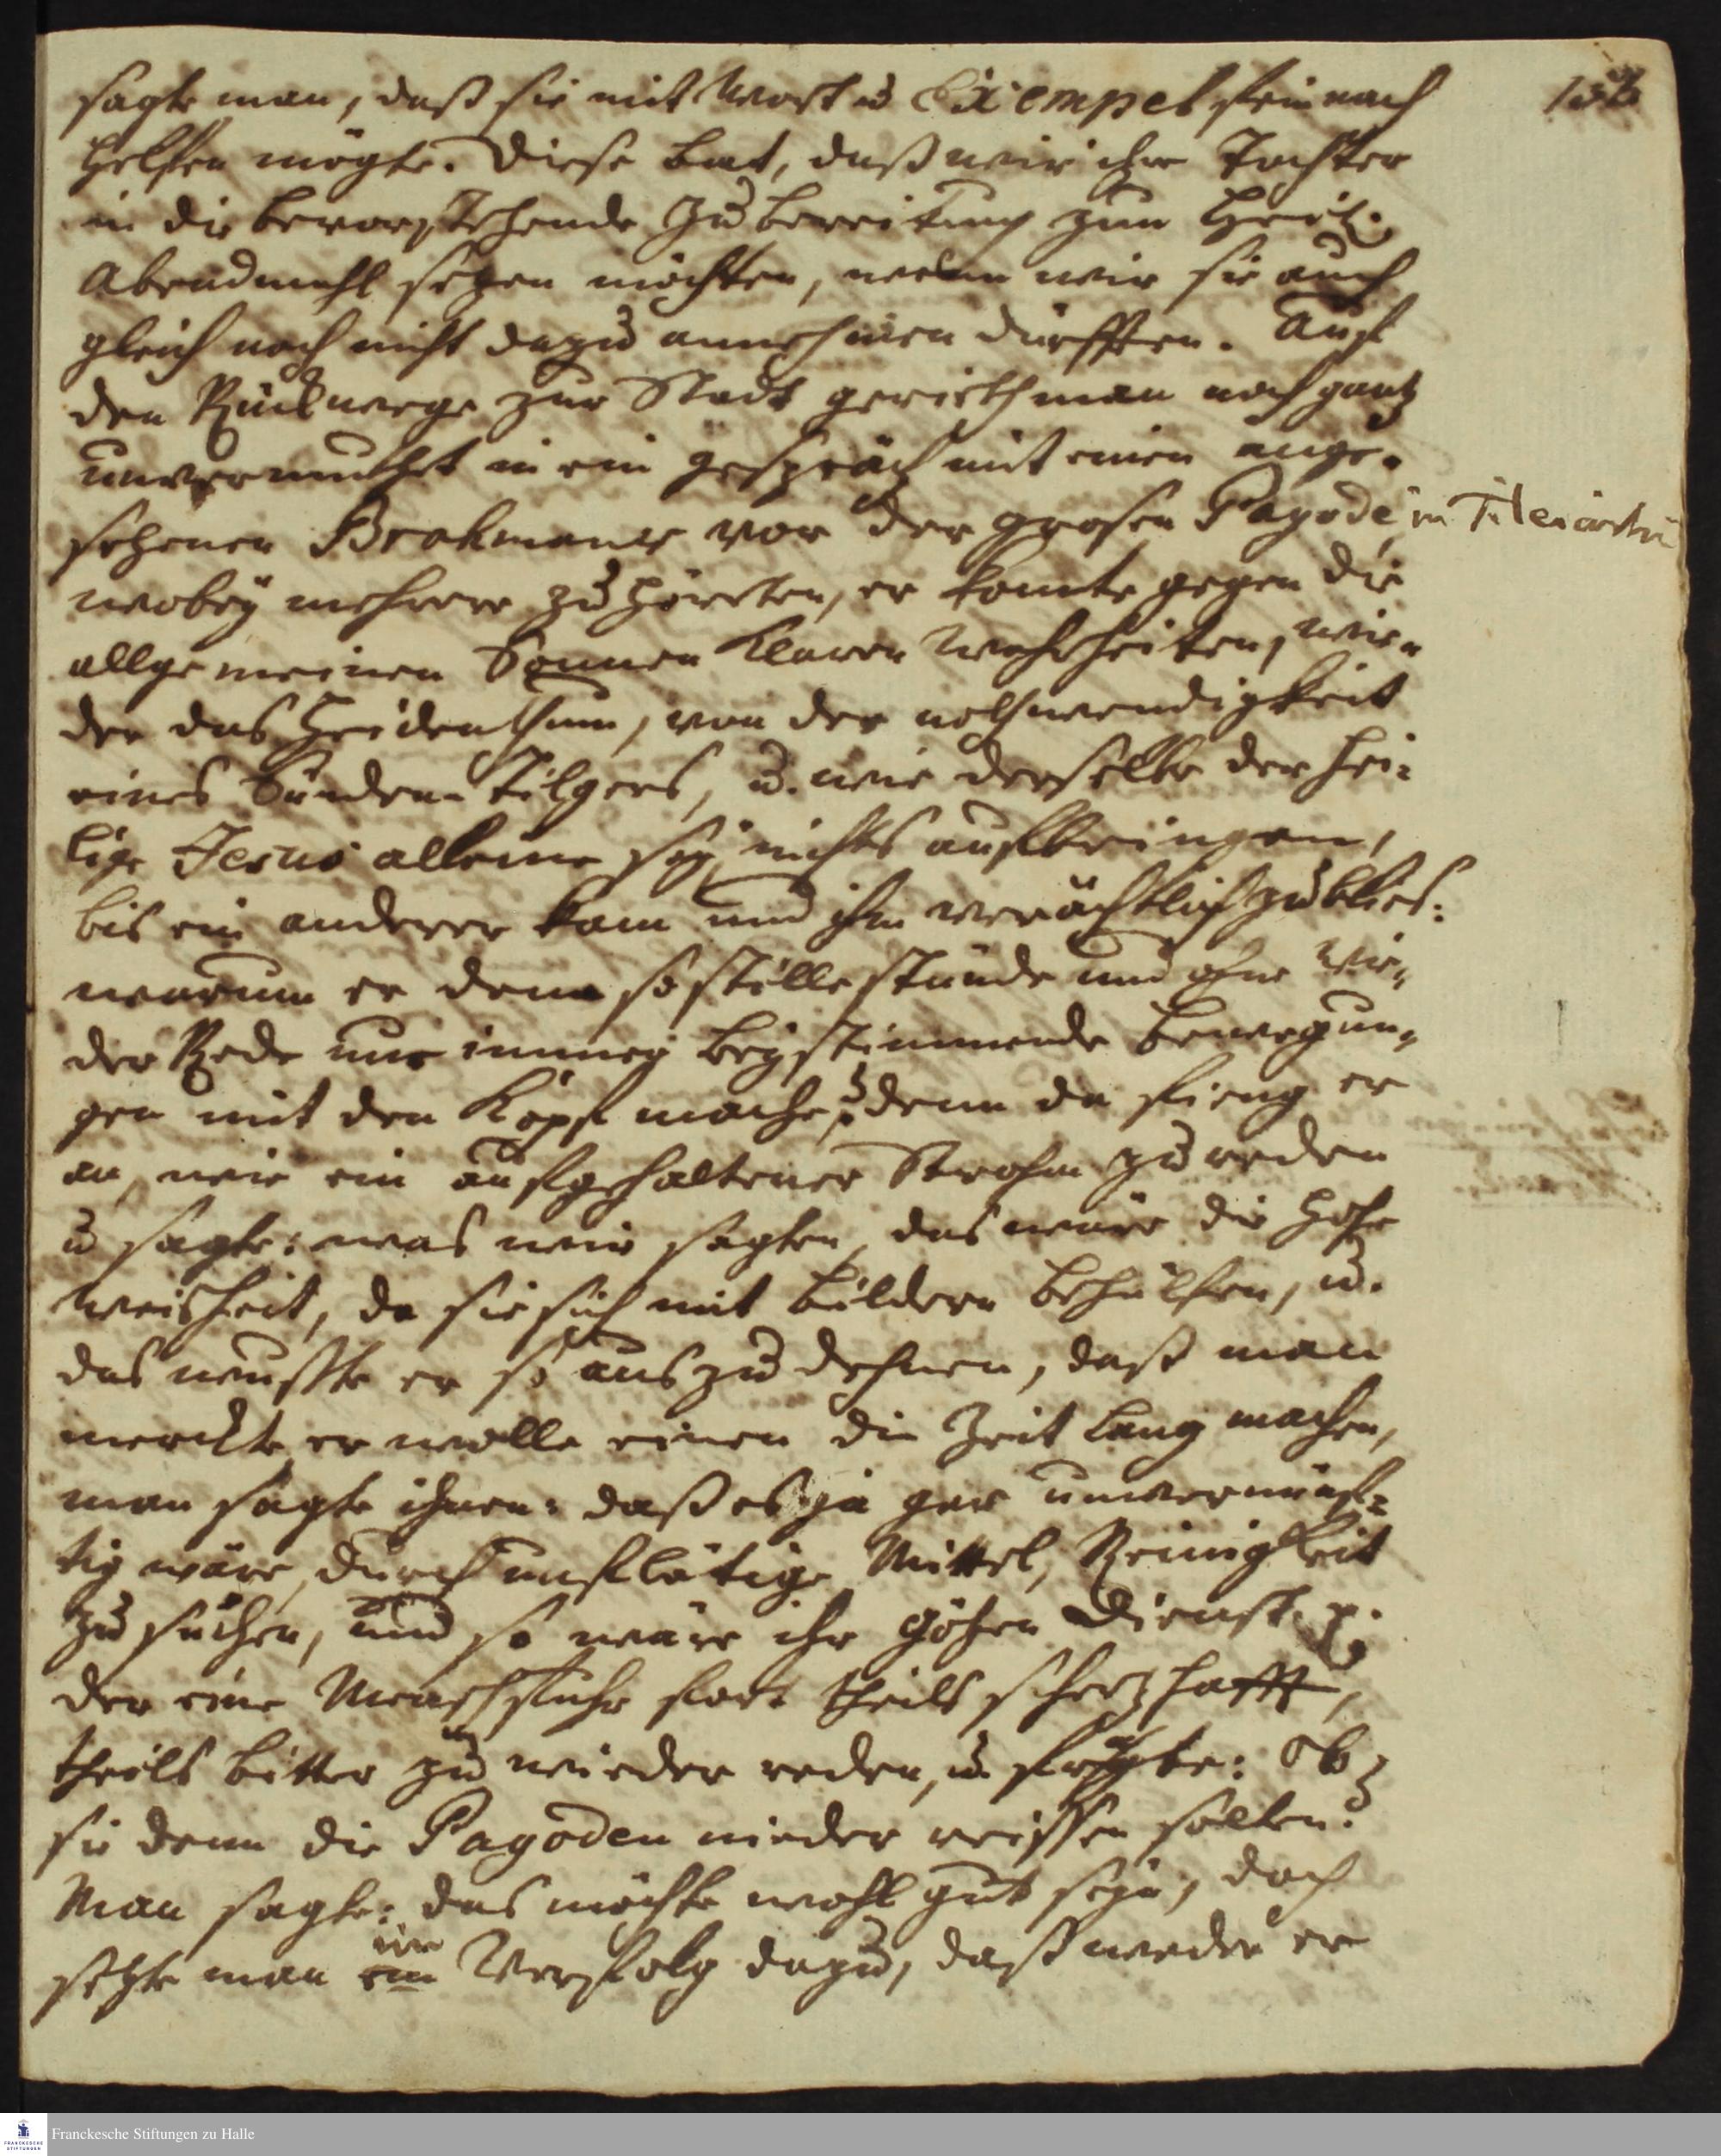 sagte man, daß sie mit Wort u Exempel fein nach
helffen mögte. Diese bat, daß wir ihre Tochter
in die bevorstehende Zubereitung zum Heil.
Abendmahl sezen möchten, wenn wir sie auch
gleich noch nicht dazu annehmen dürfften. Auf
den Rückwege zur Stadt gerieth man noch gantz
unvermuthet in ein gespräch mit einen ange-
sehenen Brahmaner vor der grosen Pagode, in
wobey mehrere zuhörten, er konte gegen die
allgemeinen Sonnen klaren Wahrheiten, wie-
der das Heidenthum, von der nothwendigkeit
eines Sünden-Tilgers, u. wie derselbe der hei-
lige Jesus alleine sey, nichts aufbringen,
bis ein anderer kam und ihm verächtlich zublies:
warum er denn so stille stünde und ohne Wie-
der Rede nur immer beystimmende bewegun-
gen mit den Kopf mache? denn da fieng er
an, wie ein aufgehaltener Strohm zu reden
u sagte: was wir sagten, das wäre die hohe
Weisheit, da sie sich mit bildern behülfen, u.
das wuste er so auszudehnen, daß man
merckte er wolle einen die Zeit lang machen,
man sagte ihnen: daß es ja gar unvernünf-
tig wäre, durch unflätige Mittel, Reinigkeit
zu suchen, und so wäre ihr götzen Dienst. p.
der eine fuhr fort theils schertzhafft,
theils bitter zu wieder reden, u. fragte: Ob
sie denn die Pagoden nieder reissen solten?
Man sagte: das möchte wohl gut seyn, doch
setzte man im Verfolg dazu, daß weder er
Franckesche Stiftungen zu Halle
FRANCKESCHE
STIFTUNGEN